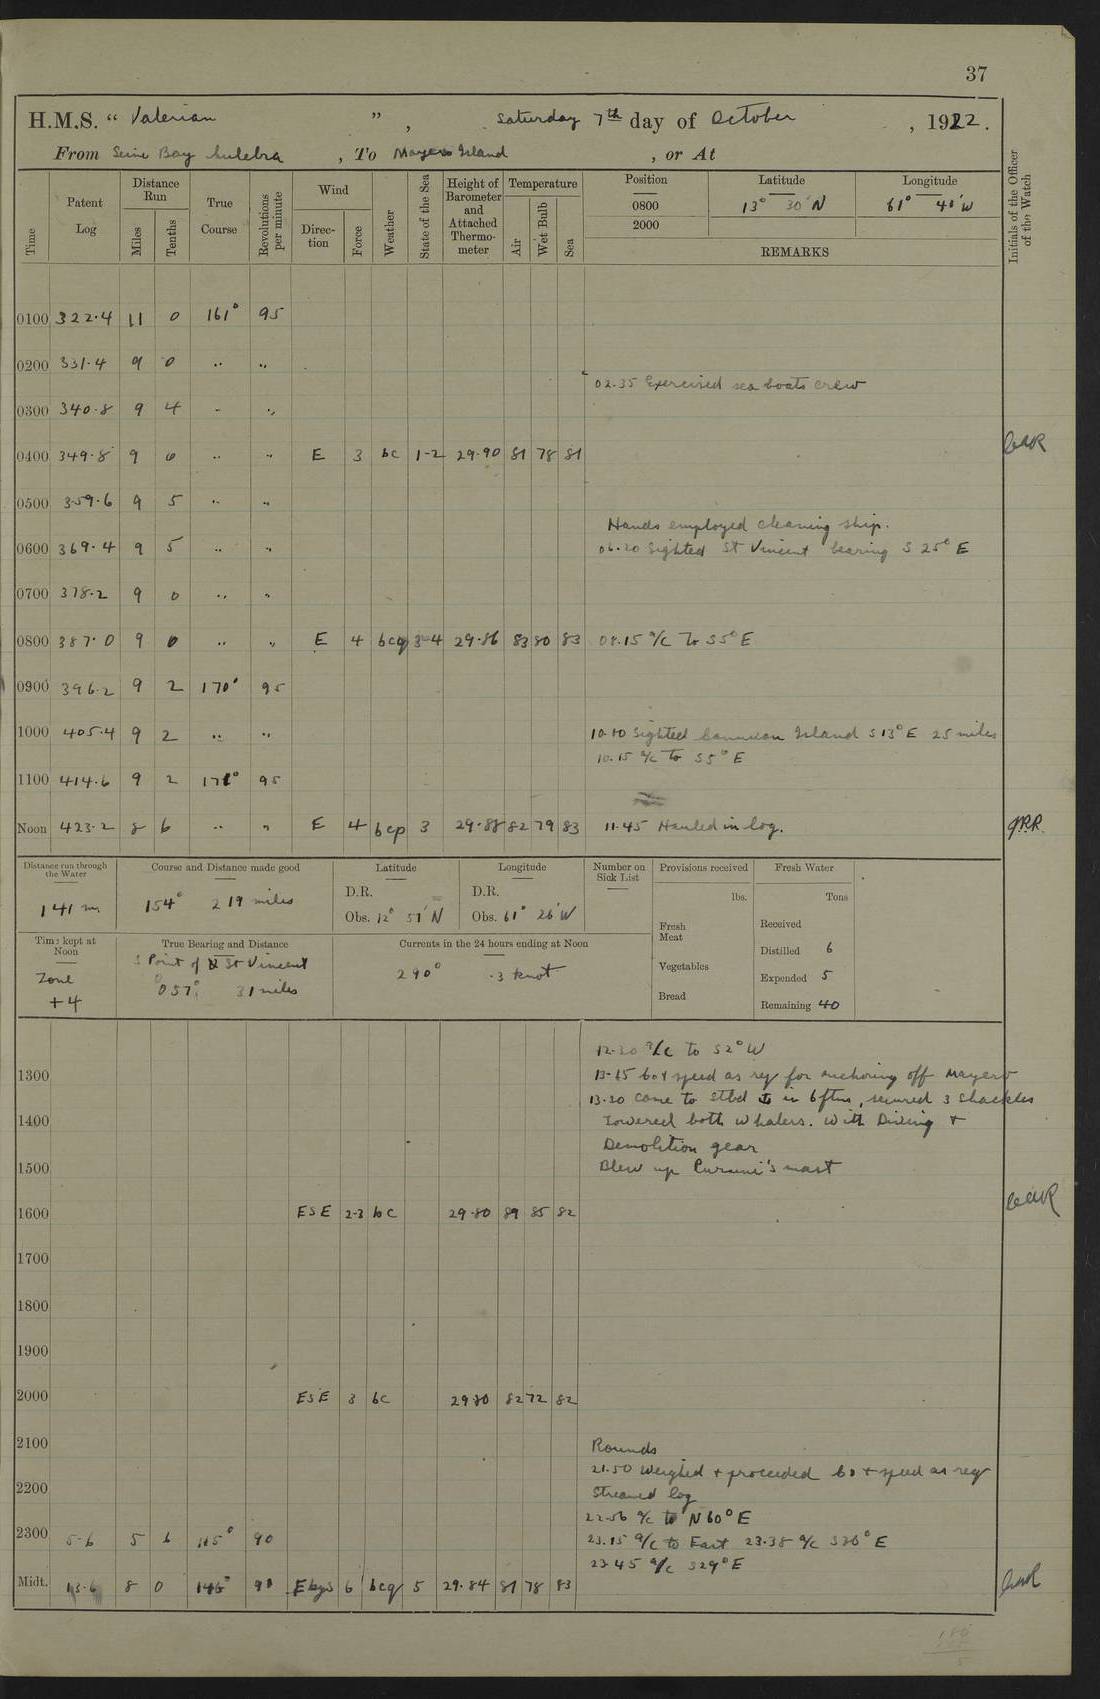 37
H.M.S. “ Valerian ” , Saturday 7th day of October , 1922.
From Seine Bay Culebra , To Mayero Island , or At
Time Patent Log Distance Run Miles Tenths True Course Revolutions per minute Wind Direction Force Weather State of the Sea Height of Barometer and Attached Thermometer Temperature Air Wet Bulb Sea Position Latitude Longitude Initials of the Officer of the Watch
0800 13° 30' N 61° 40' W
2000
REMARKS
0100 322.4 11 0 161° 95
0200 331.4 9 0 .. ..
02.35 Exercised sea boats crew
0300 340.8 9 4 .. ..
0400 349.8 9 0 .. .. E 3 bc 1-2 29.90 81 78 81
0500 359.6 9 5 .. ..
Hands employed cleaning ship.
0600 369.4 9 5 .. .. 06.20 Sighted St Vincent bearing S 25° E
0700 378.2 9 0 .. ..
0800 387.0 9 0 .. .. E 4 bcq 3-4 29.86 83 80 83 08.15 a/c to S5°E
0900 396.2 9 2 170° 95
1000 405.4 9 2 .. .. 10.10 Sighted Cannouan Island S13°E 25 miles
10.15 a/c to S5°E
1100 414.6 9 2 171° 95
Noon 423.2 8 6 .. .. E 4 bcp 3 29.88 82 79 83 11.45 Hauled in log.
Distance run through the Water Course and Distance made good Latitude Longitude Number on Sick List Provisions received Fresh Water
141 m 154° 219 miles D.R. D.R. lbs. Tons
Obs. 12° 57' N Obs. 61° 26' W Fresh Meat Received
Time kept at Noon True Bearing and Distance Currents in the 24 hours ending at Noon Distilled 6
Zone +4 S Point of St Vincent 290° .3 knot Vegetables Expended 5
057° 31 miles Bread Remaining 40
12.30 a/c to S2°W
1300 13.15 Co + speed as req for anchoring off Mayero
13.20 Came to stbd in 6 ftms, secured 3 shackles
1400 Lowered both whalers. With Diving +
Demolition gear
1500 Blew up mast
1600 ESE 2-3 bc 29.80 89 85 82
1700
1800
1900
2000 ESE 3 bc 29.80 82 72 82
2100 Rounds
21.50 Weighed + proceeded Co + speed as req
2200 Streamed log
22.56 a/c to N60°E
2300 5.6 5 6 115° 90 23.15 a/c to East 23.38 a/c S36°E
23.45 a/c S29°E
Midt. 13.6 8 0 146° 90 E by S 6 bcq 5 29.84 81 78 83